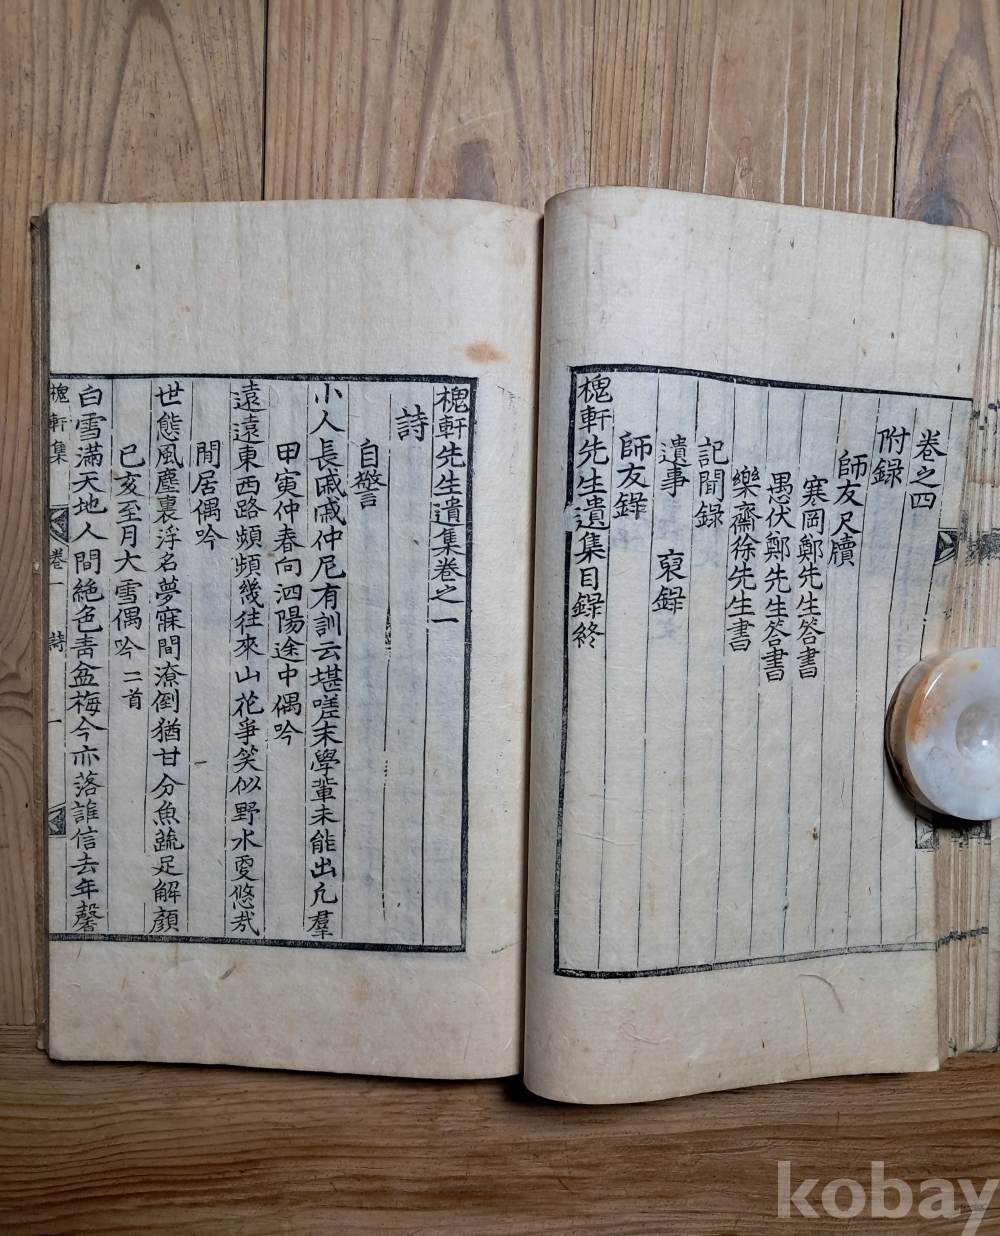 卷之四
附録
師友尺牘
寒岡鄭先生答書
愚伏鄭先生答書
樂齋徐先生書
記聞錄
遺事 裒錄
師友錄
槐軒先生遺集目錄終
槐軒先生遺集卷之一
詩
自警
小人長戚戚仲尼有訓云堪嗟末學輩未能出凡羣
甲寅仲春向泗陽途中偶吟
遠遠東西路頻頻幾往來山花爭笑似野水更悠哉
閒居偶吟
世態風塵裏浮名夢寐間潦倒猶甘分魚蔬足解顏
己亥至月大雪偶吟 二首
白雪滿天地人間絶色靑盆梅今亦落誰信去年馨
槐軒集 卷一 詩 一
kobay